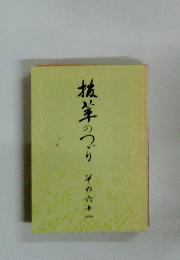 抜萃のつゞり その六十一